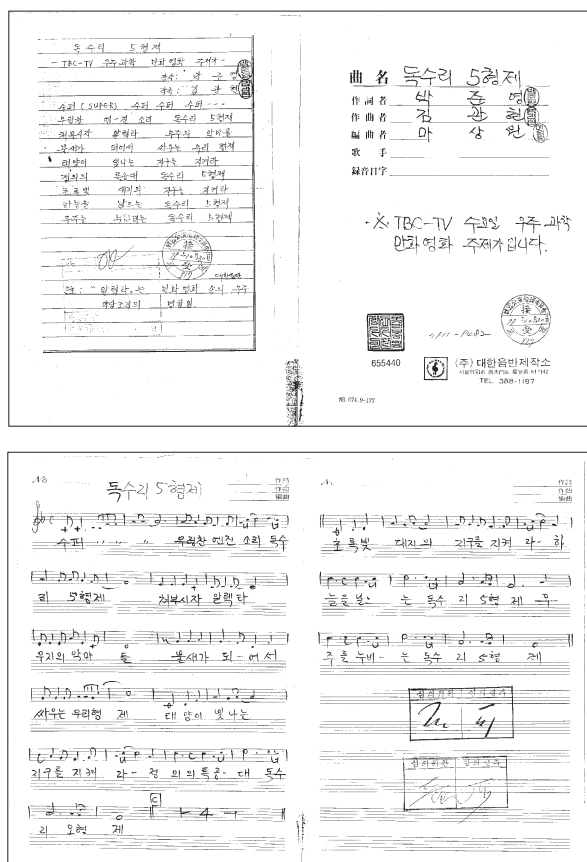 독수리 5형제
- TBC-TV 우주과학 만화영화 주제가 -
작사: 박준영
작곡: 김관현
수퍼 (SUPER) 수퍼 수퍼 수퍼 ---
우렁찬 엔진 소리 독수리 5형제
쳐부시자 알렉타 우주의 악마들
불새가 되어서 싸우는 우리 형제
태양이 빛나는 지구를 지켜라
정의의 특공대 독수리 5형제
초록빛 대지의 지구를 지켜라
하늘을 날으는 독수리 5형제
우주를 누비는 독수리 5형제
曲名 독수리 5형제
作詞者 박준영
作曲者 김관현
編曲者 마상원
歌手
錄音日字
·※ TBC-TV 수요일 우주과학
만화영화 주제가입니다.
655440
(주) 대한음반제작소
TEL. 388-1187
독수리 5형제
作詩
作曲
編曲
수퍼 〃 〃 〃 우렁찬 엔진 소리 독수
리 5형제 쳐부시자 알렉타
우주의 악마 들 불새가 되-어서
싸우는 우리형 제 태양이 빛나는
지구를 지켜 라- 정의의특공-대 독수
리 오형 제
作詩
作曲
編曲
초록빛 대지의 지구를 지켜 라- 하
늘을 날으 는 독수 리 5형 제 우
주를 누비- 는 독수 리 5형 제
심의위원 심의결과
심의위원 심의결과